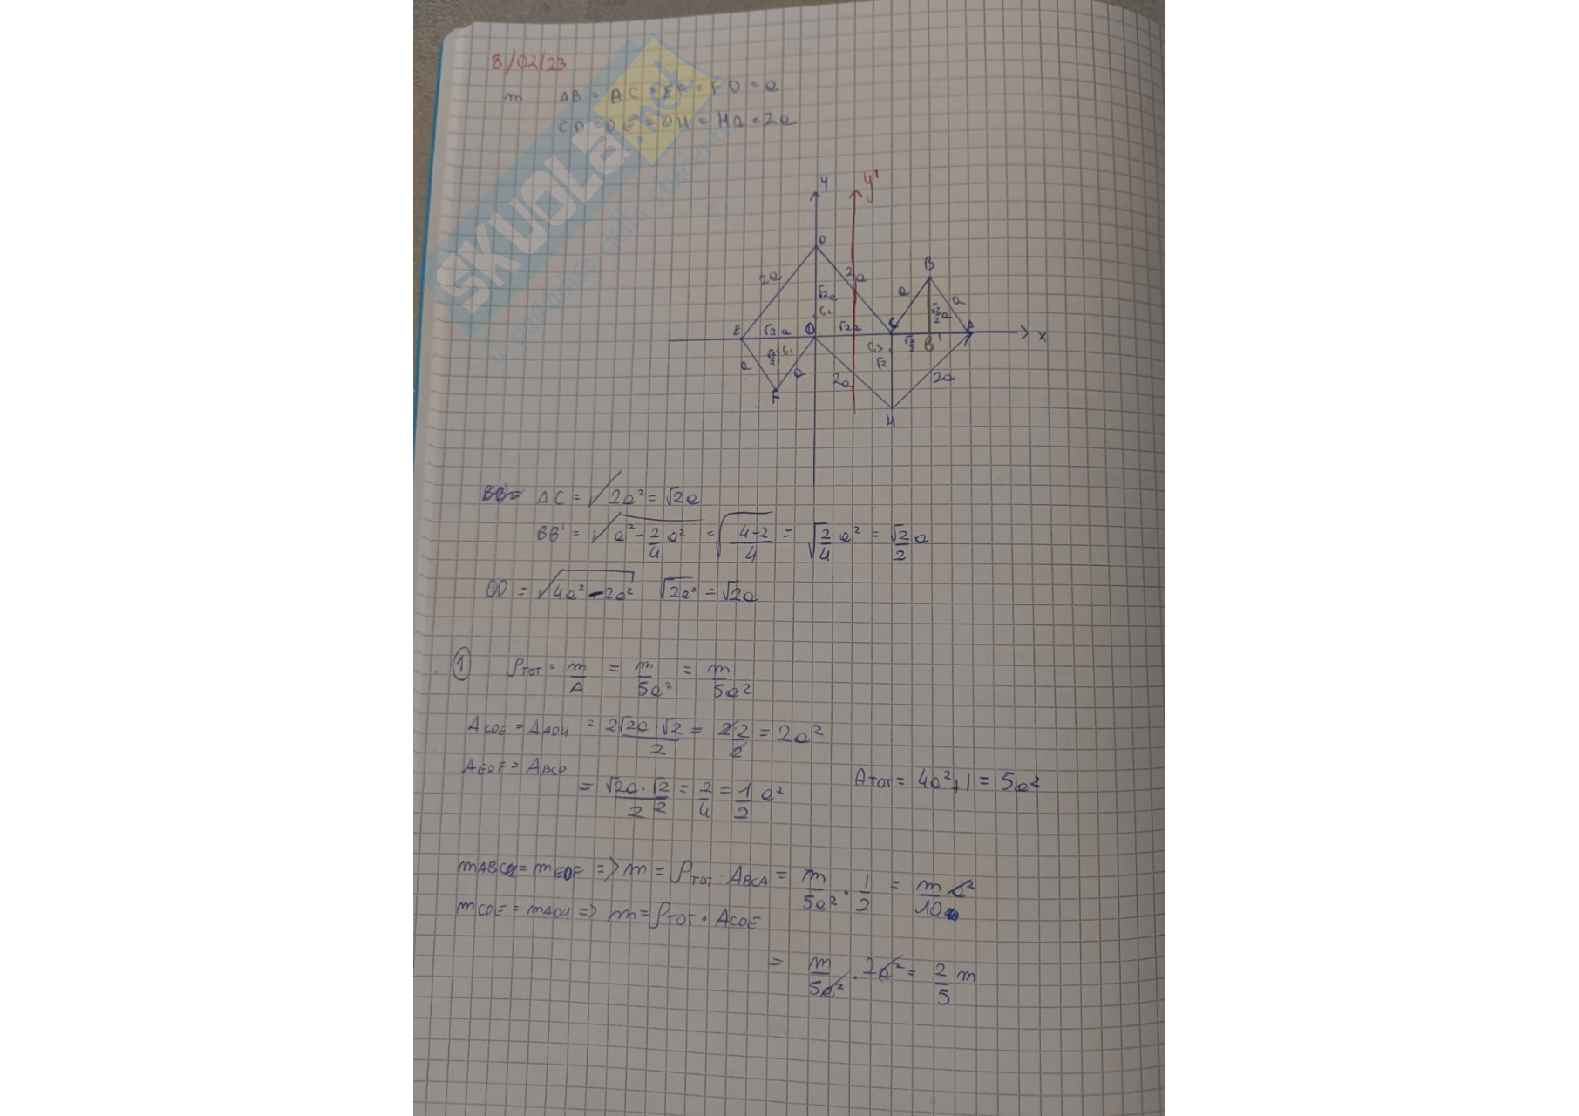 8/02/23
m AB = AC = EF = FO = a
CD = DE = OH = HA = 2a
SKUOLA.net
y y'
D
B
2a 2a a a
√2a √2/2a
E √2a O √2a C B' A x
a a 2a 2a
F H
BB'= AC = √2a² = √2a
BB' = √a² - 2/4 a² = √4-2/4 = √2/4 a² = √2/2 a
OD = √4a² - 2a² √2a² = √2a
① ρTOT = m/A = m/5a² = m/5a²
ACDE = AAOH = 2√2a √2/2 = 2·2/2 = 2a²
AEOF = ABCA
= √2a · √2/2 /2 = 2/4 = 1/2 a² ATOT = 4a²+1 = 5a²
mABCA = mEOF => m = ρTOT ABCA = m/5a² · 1/2 = m a²/10a
mCDE = mAOH => m = ρTOT · ACDE
= m/5a² · 2a² = 2/5 m